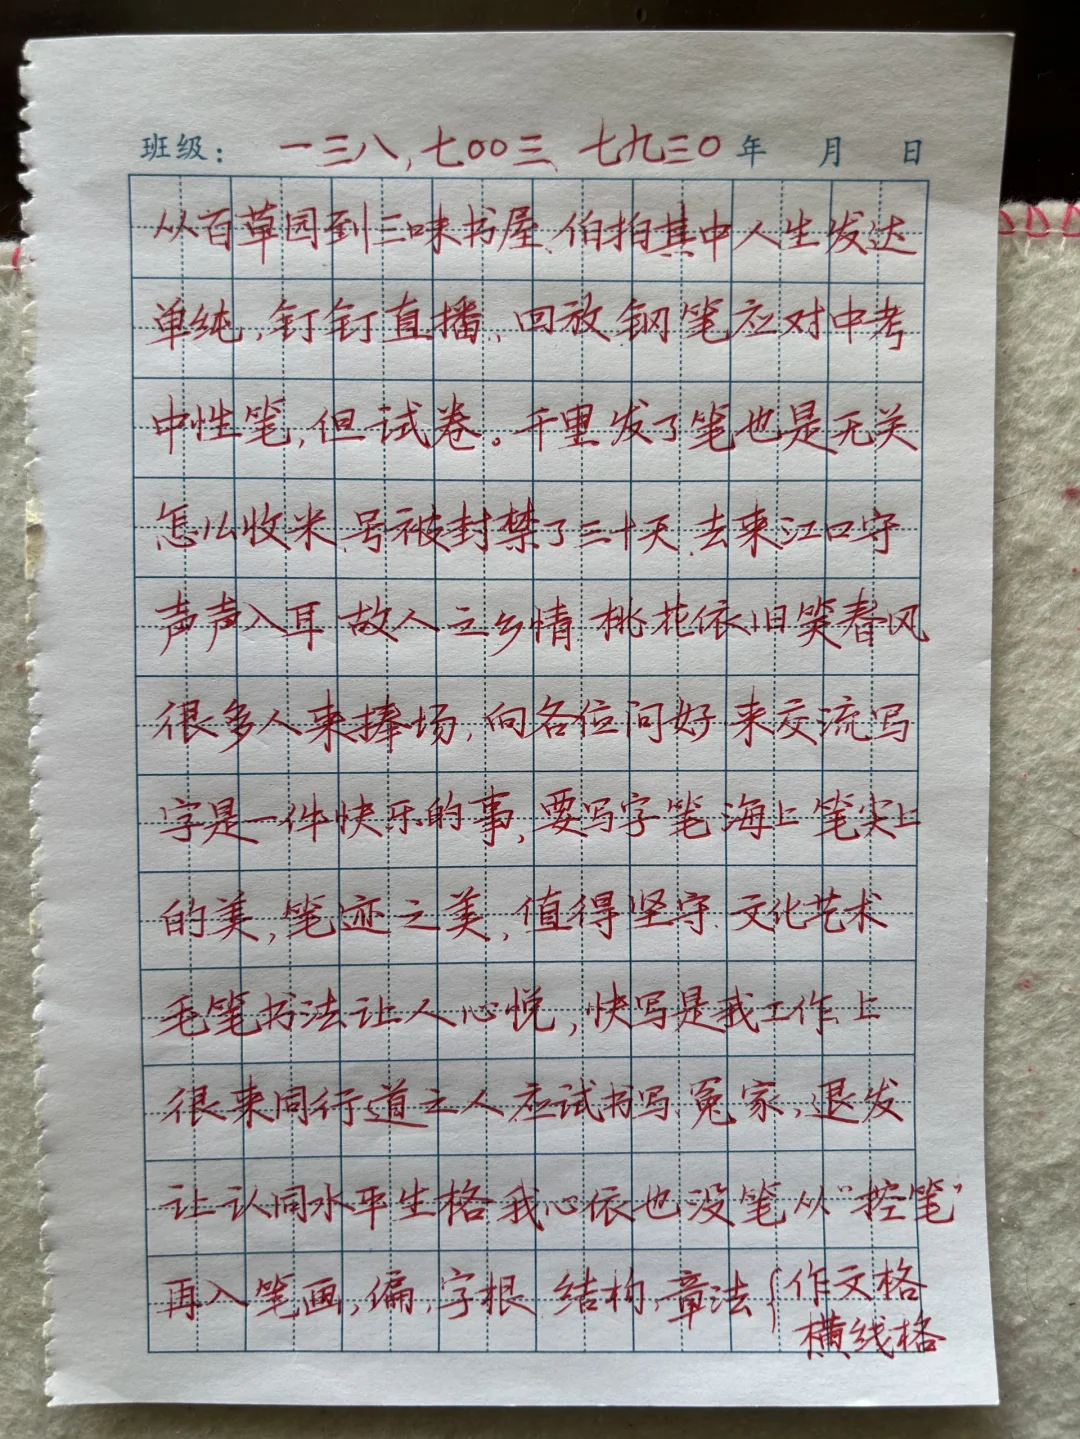 班级： 一三八,七〇〇三、七九三〇年 月 日
从百草园到三味书屋、伯拍其中人生发达
单纯,钉钉直播,回放钢笔应对中考
中性笔,但试卷。千里发了笔也是无关
怎么收米 号被封禁了三十天 去来江口守
声声入耳 故人之乡情 桃花依旧笑春风
很多人来捧场,向各位问好 来交流写
字是一件快乐的事,要写字笔海上笔尖上
的美,笔迹之美,值得坚守 文化艺术
毛笔书法让人心悦,快写是我工作上
很来同行道之人应试书写、冤家,退发
让认同水平生格我心依也没笔从“控笔”
再入笔画,偏,字根 结构,章法{作文格
横线格